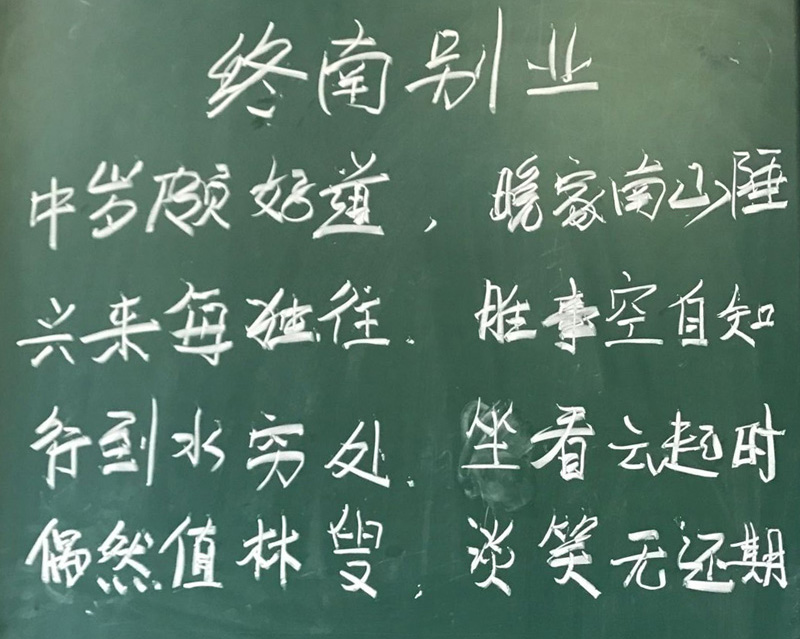 终南别业
中岁颇好道，晚家南山陲
兴来每独往．胜事空自知
行到水穷处．坐看云起时
偶然值林叟，淡笑无还期